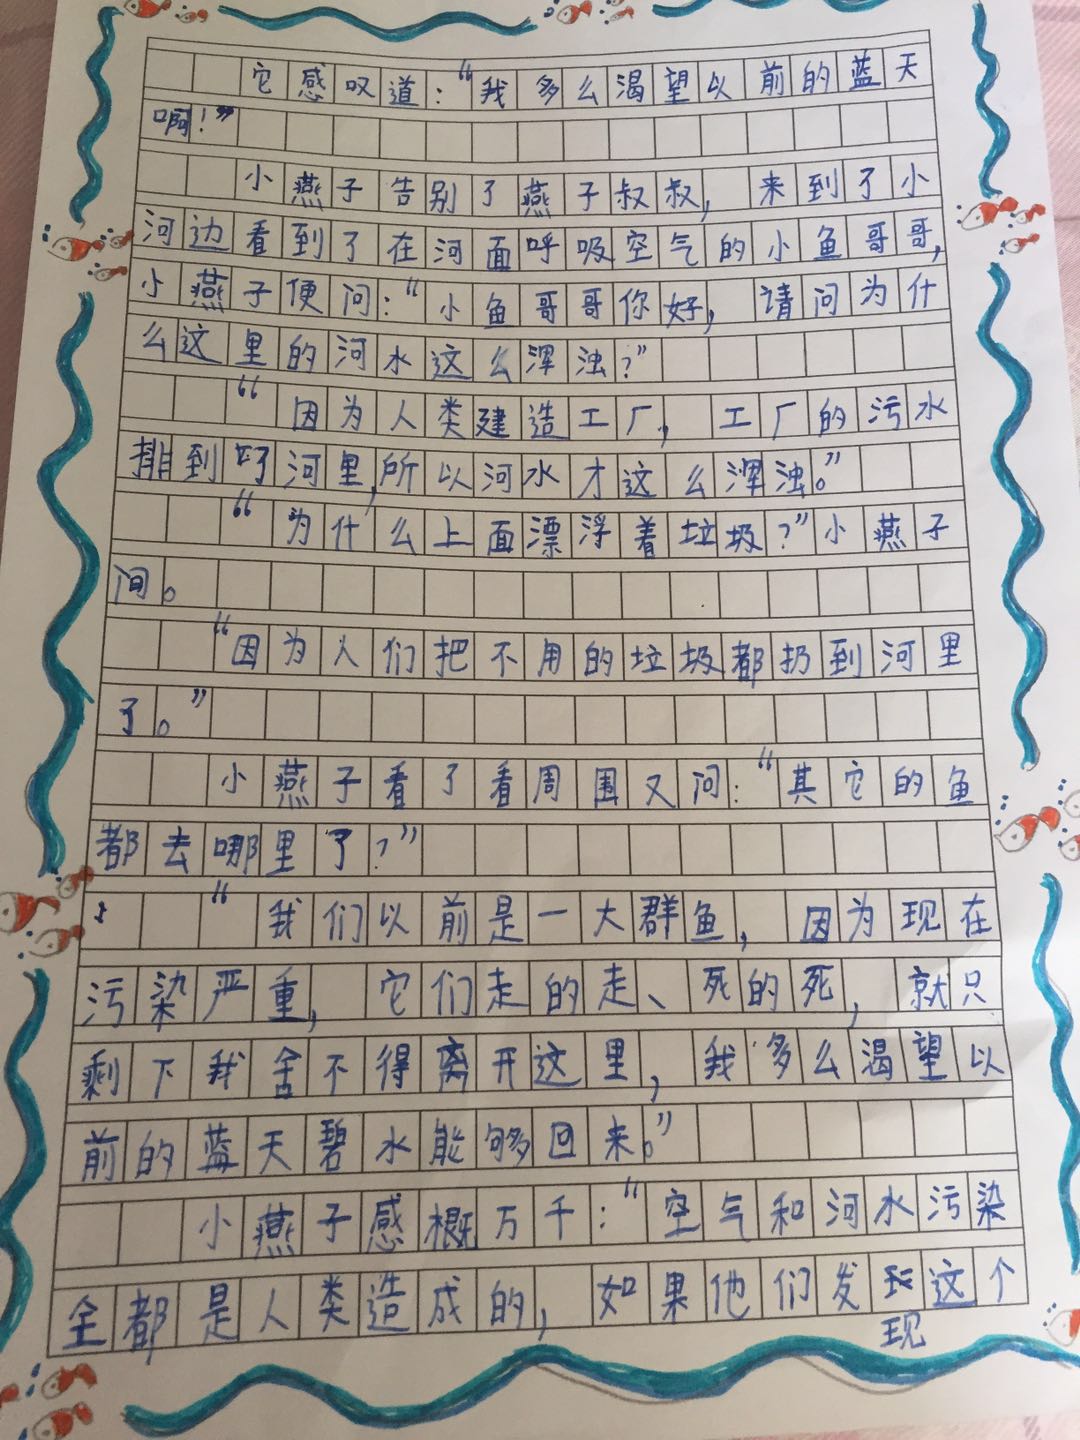 它感叹道：“我多么渴望以前的蓝天
啊！”
小燕子告别了燕子叔叔，来到了小
河边看到了在河面呼吸空气的小鱼哥哥，
小燕子便问：“小鱼哥哥你好，请问为什
么这里的河水这么浑浊？”
“因为人类建造工厂，工厂的污水
排到了河里，所以河水才这么浑浊。”
“为什么上面漂浮着垃圾？”小燕子
问。
“因为人们把不用的垃圾都扔到河里
了。”
小燕子看了看周围又问：“其它的鱼
都去哪里了？”
“我们以前是一大群鱼，因为现在
污染严重，它们走的走、死的死，就只
剩下我舍不得离开这里，我多么渴望以
前的蓝天碧水能够回来。”
小燕子感概万千：“空气和河水污染
全都是人类造成的，如果他们发这个
现